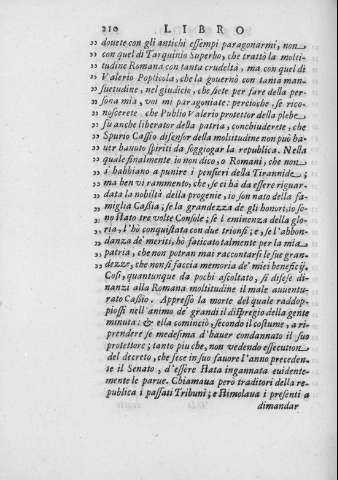 210 LIBRO
„ douete con gli antichi essempi paragonarmi, non
„ con quel di Tarquinio Superbo, che trattò la molti-
„ tudine Romana con tanta crudeltà, ma con quel di
„ Valerio Poplicola, che la gouernò con tanta man-
„ suetudine, nel giudicio, che sete per fare della per-
„ sona mia, voi mi paragoniate: percioche, se rico-
„ noscerete, che Publio Valerio protettor della plebe
„ fù anche liberator della patria, conchiuderete, che
„ Spurio Cassio difensor della moltitudine non può ha-
„ uer hauuto spiriti da soggiogar la republica. Nella
„ quale finalmente, io non dico, o Romani, che non
„ s'habbiano a punire i pensieri della Tirannide;
„ ma ben vi rammento, che, se ci hà da essere riguar-
„ data la nobiltà della progenie, io son nato della fa-
„ miglia Cassia; se la grandezza de gli honori, io so-
„ no stato tre volte Console; se l'eminenza della glo-
„ ria, l'hò conquistata con due trionfi; e, se l'abbon-
„ danza de' meriti, hò faticato talmente per la mia
„ patria, che non potran mai raccontarsi le sue gran-
„ dezze, che non si faccia memoria de' miei beneficij.
Così, quantunque da pochi ascoltato, si difese di-
nanzi alla Romana moltitudine il male auuentu-
rato Cassio. Appresso la morte del quale raddop-
piossi nell'animo de' grandi il dispregio della gente
minuta: & ella cominciò, secondo il costume, a ri-
prendere se medesima d'hauer condannato il suo
protettore; tanto più che, non vedendo essecution
del decreto, che fece in suo fauore l'anno preceden-
te il Senato, d'essere stata ingannata euidente-
mente le parue. Chiamaua però traditori della re-
publica i passati Tribuni; e stimolaua i presenti a
dimandar